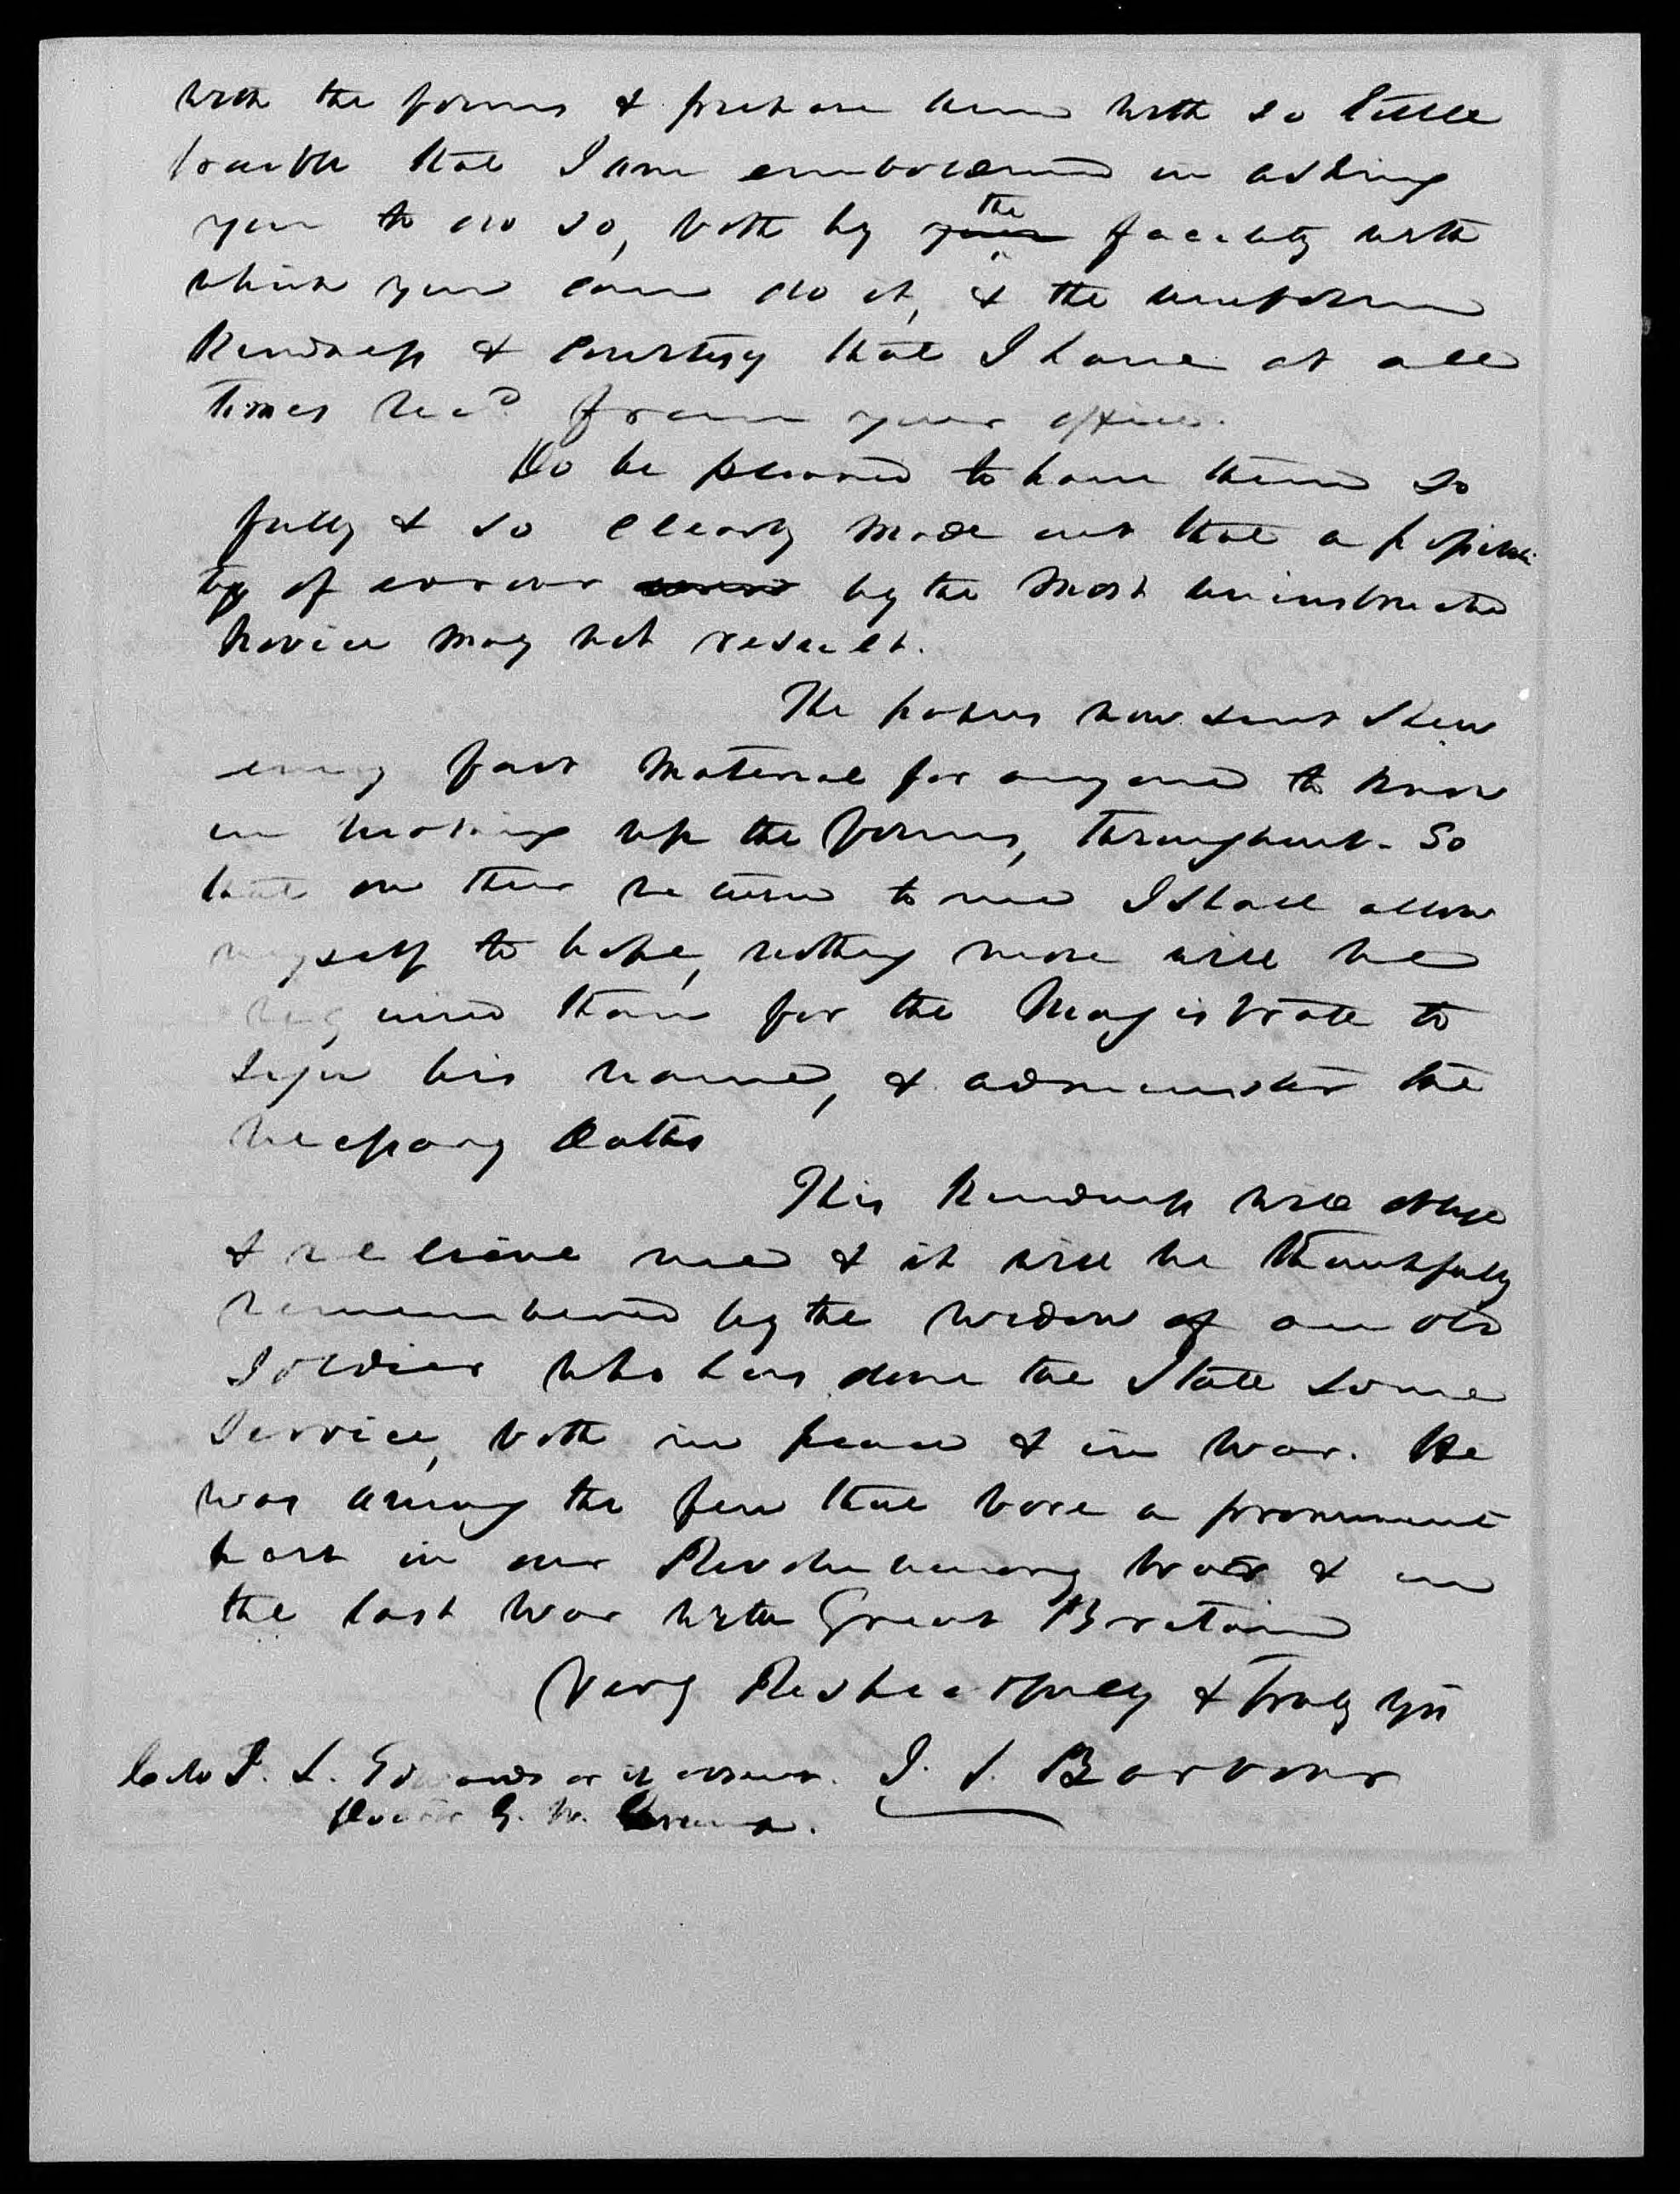 with the forms & prepare them with so little
trouble that I am emboldened in asking
you to do so, both by your the facility with
which you can do it, & the uniform
kindness & courtesy that I have at all
times recd from your office.
Do be pleased to have them so
fully & so clearly made out that a possibili
ty of error by the most uninstructed
novice may not result.
The papers now sent shew
every fact material for anyone to know
in making up the forms, throughout. So
that on their return to me I shall allow
myself to hope, nothing more will be
required than for the Magistrate to
sign his name, & administer the
necessary Oaths
This kindness will oblige
& relieve me & it will be thankfully
remembered by the widow of an old
Soldier who has done the State some
service, both in peace & in war. He
was among the few that bore a prominent
part in our Revolutionary war & in
the last war with Great Britain
Very Respectfully & truly yrs
Colo J. L. Edwards or if absent. J. S. Barbour
Doctor G. W.